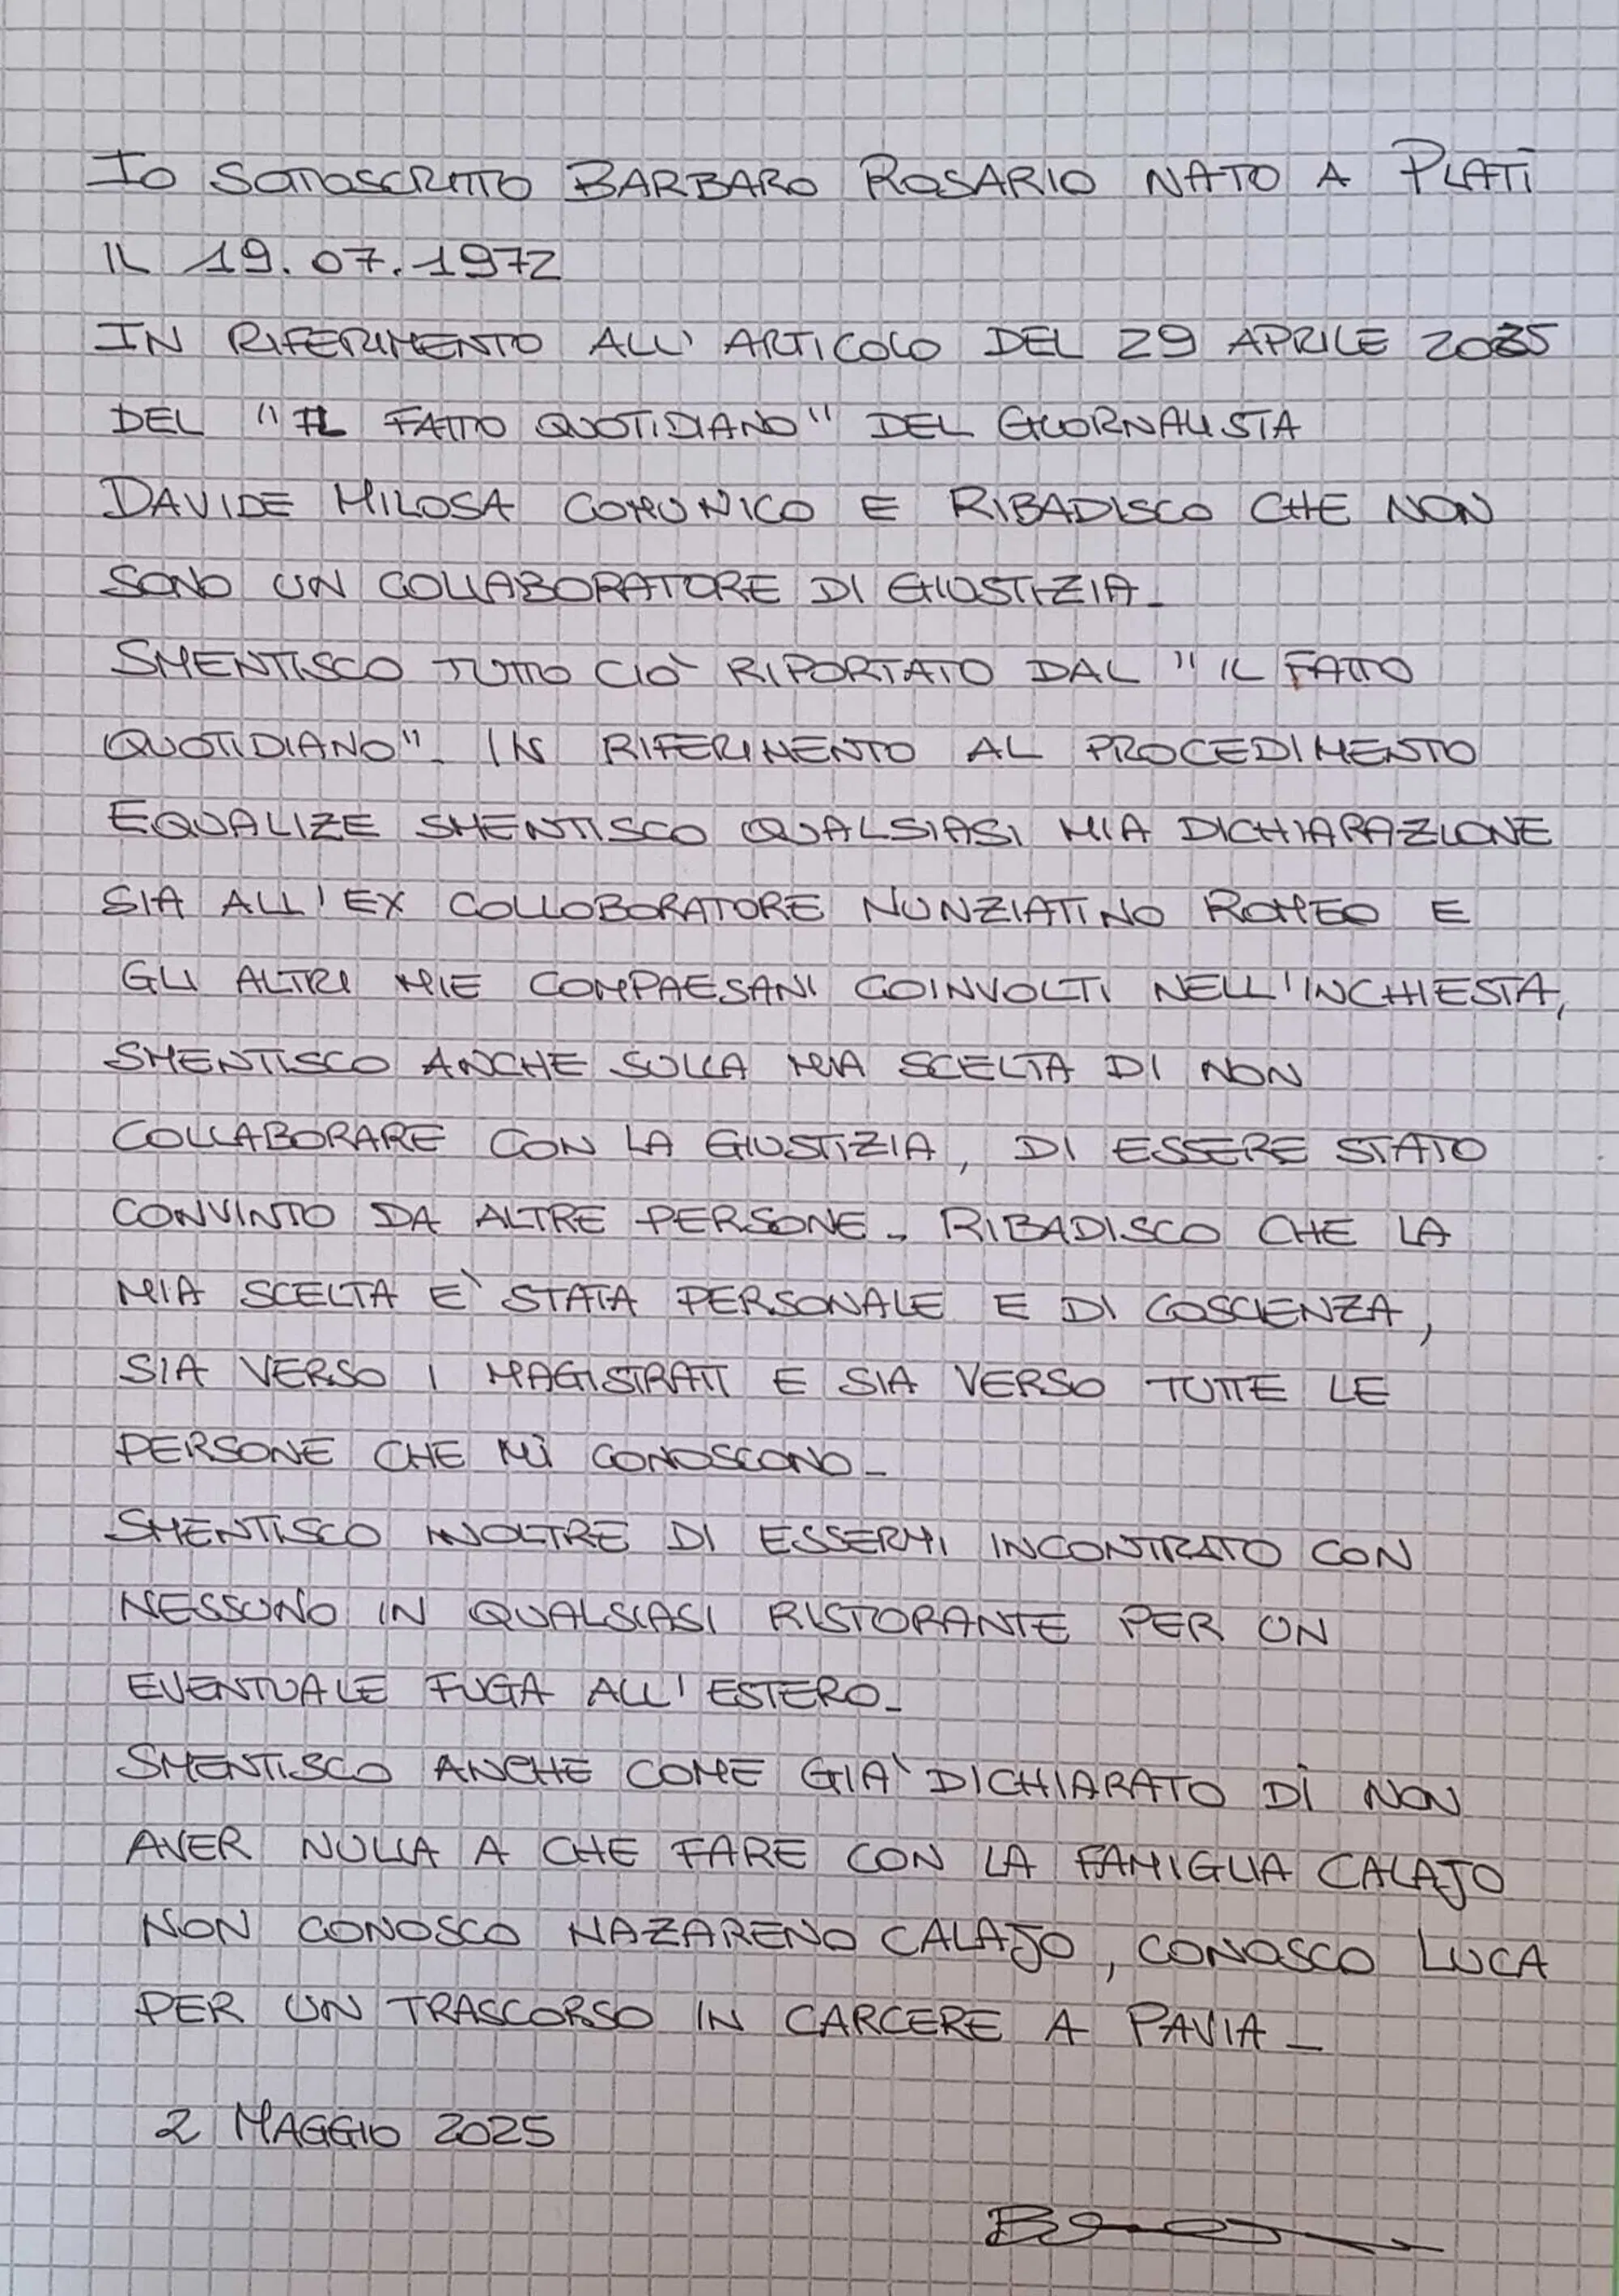 IO SOTTOSCRITTO BARBARO ROSARIO NATO A PLATÌ
IL 19.07.1972
IN RIFERIMENTO ALL'ARTICOLO DEL 29 APRILE 2025
DEL "IL FATTO QUOTIDIANO" DEL GIORNALISTA
DAVIDE MILOSA COMUNICO E RIBADISCO CHE NON
SONO UN COLLABORATORE DI GIUSTIZIA_
SMENTISCO TUTTO CIÒ RIPORTATO DAL "IL FATTO
QUOTIDIANO". IN RIFERIMENTO AL PROCEDIMENTO
EQUALIZE SMENTISCO QUALSIASI MIA DICHIARAZIONE
SIA ALL'EX COLLOBORATORE NUNZIATINO ROMEO E
GLI ALTRI MIE COMPAESANI COINVOLTI NELL'INCHIESTA,
SMENTISCO ANCHE SULLA MIA SCELTA DI NON
COLLABORARE CON LA GIUSTIZIA, DI ESSERE STATO
CONVINTO DA ALTRE PERSONE_ RIBADISCO CHE LA
MIA SCELTA E' STATA PERSONALE E DI COSCIENZA,
SIA VERSO I MAGISTRATI E SIA VERSO TUTTE LE
PERSONE CHE MI CONOSCONO_
SMENTISCO INOLTRE DI ESSERMI INCONTRATO CON
NESSUNO IN QUALSIASI RISTORANTE PER UN
EVENTUALE FUGA ALL'ESTERO_
SMENTISCO ANCHE COME GIA' DICHIARATO DI NON
AVER NULLA A CHE FARE CON LA FAMIGLIA CALAJO
NON CONOSCO NAZARENO CALAJO, CONOSCO LUCA
PER UN TRASCORSO IN CARCERE A PAVIA_
2 MAGGIO 2025